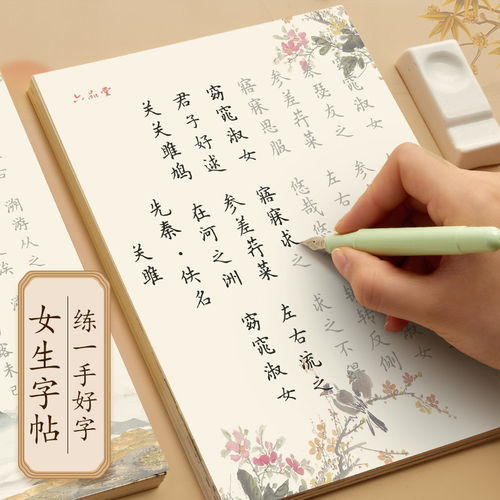 六品堂
关雎
先秦·佚名
关关雎鸠
在河之洲
窈窕淑女
君子好逑
参差荇菜
左右流之
窈窕淑女
寤寐求之
求之不
寤寐思服
悠哉
转反侧
参差荇菜
左右
窈窕淑女
琴瑟友之
溯游从之
练一手好字
女生字帖